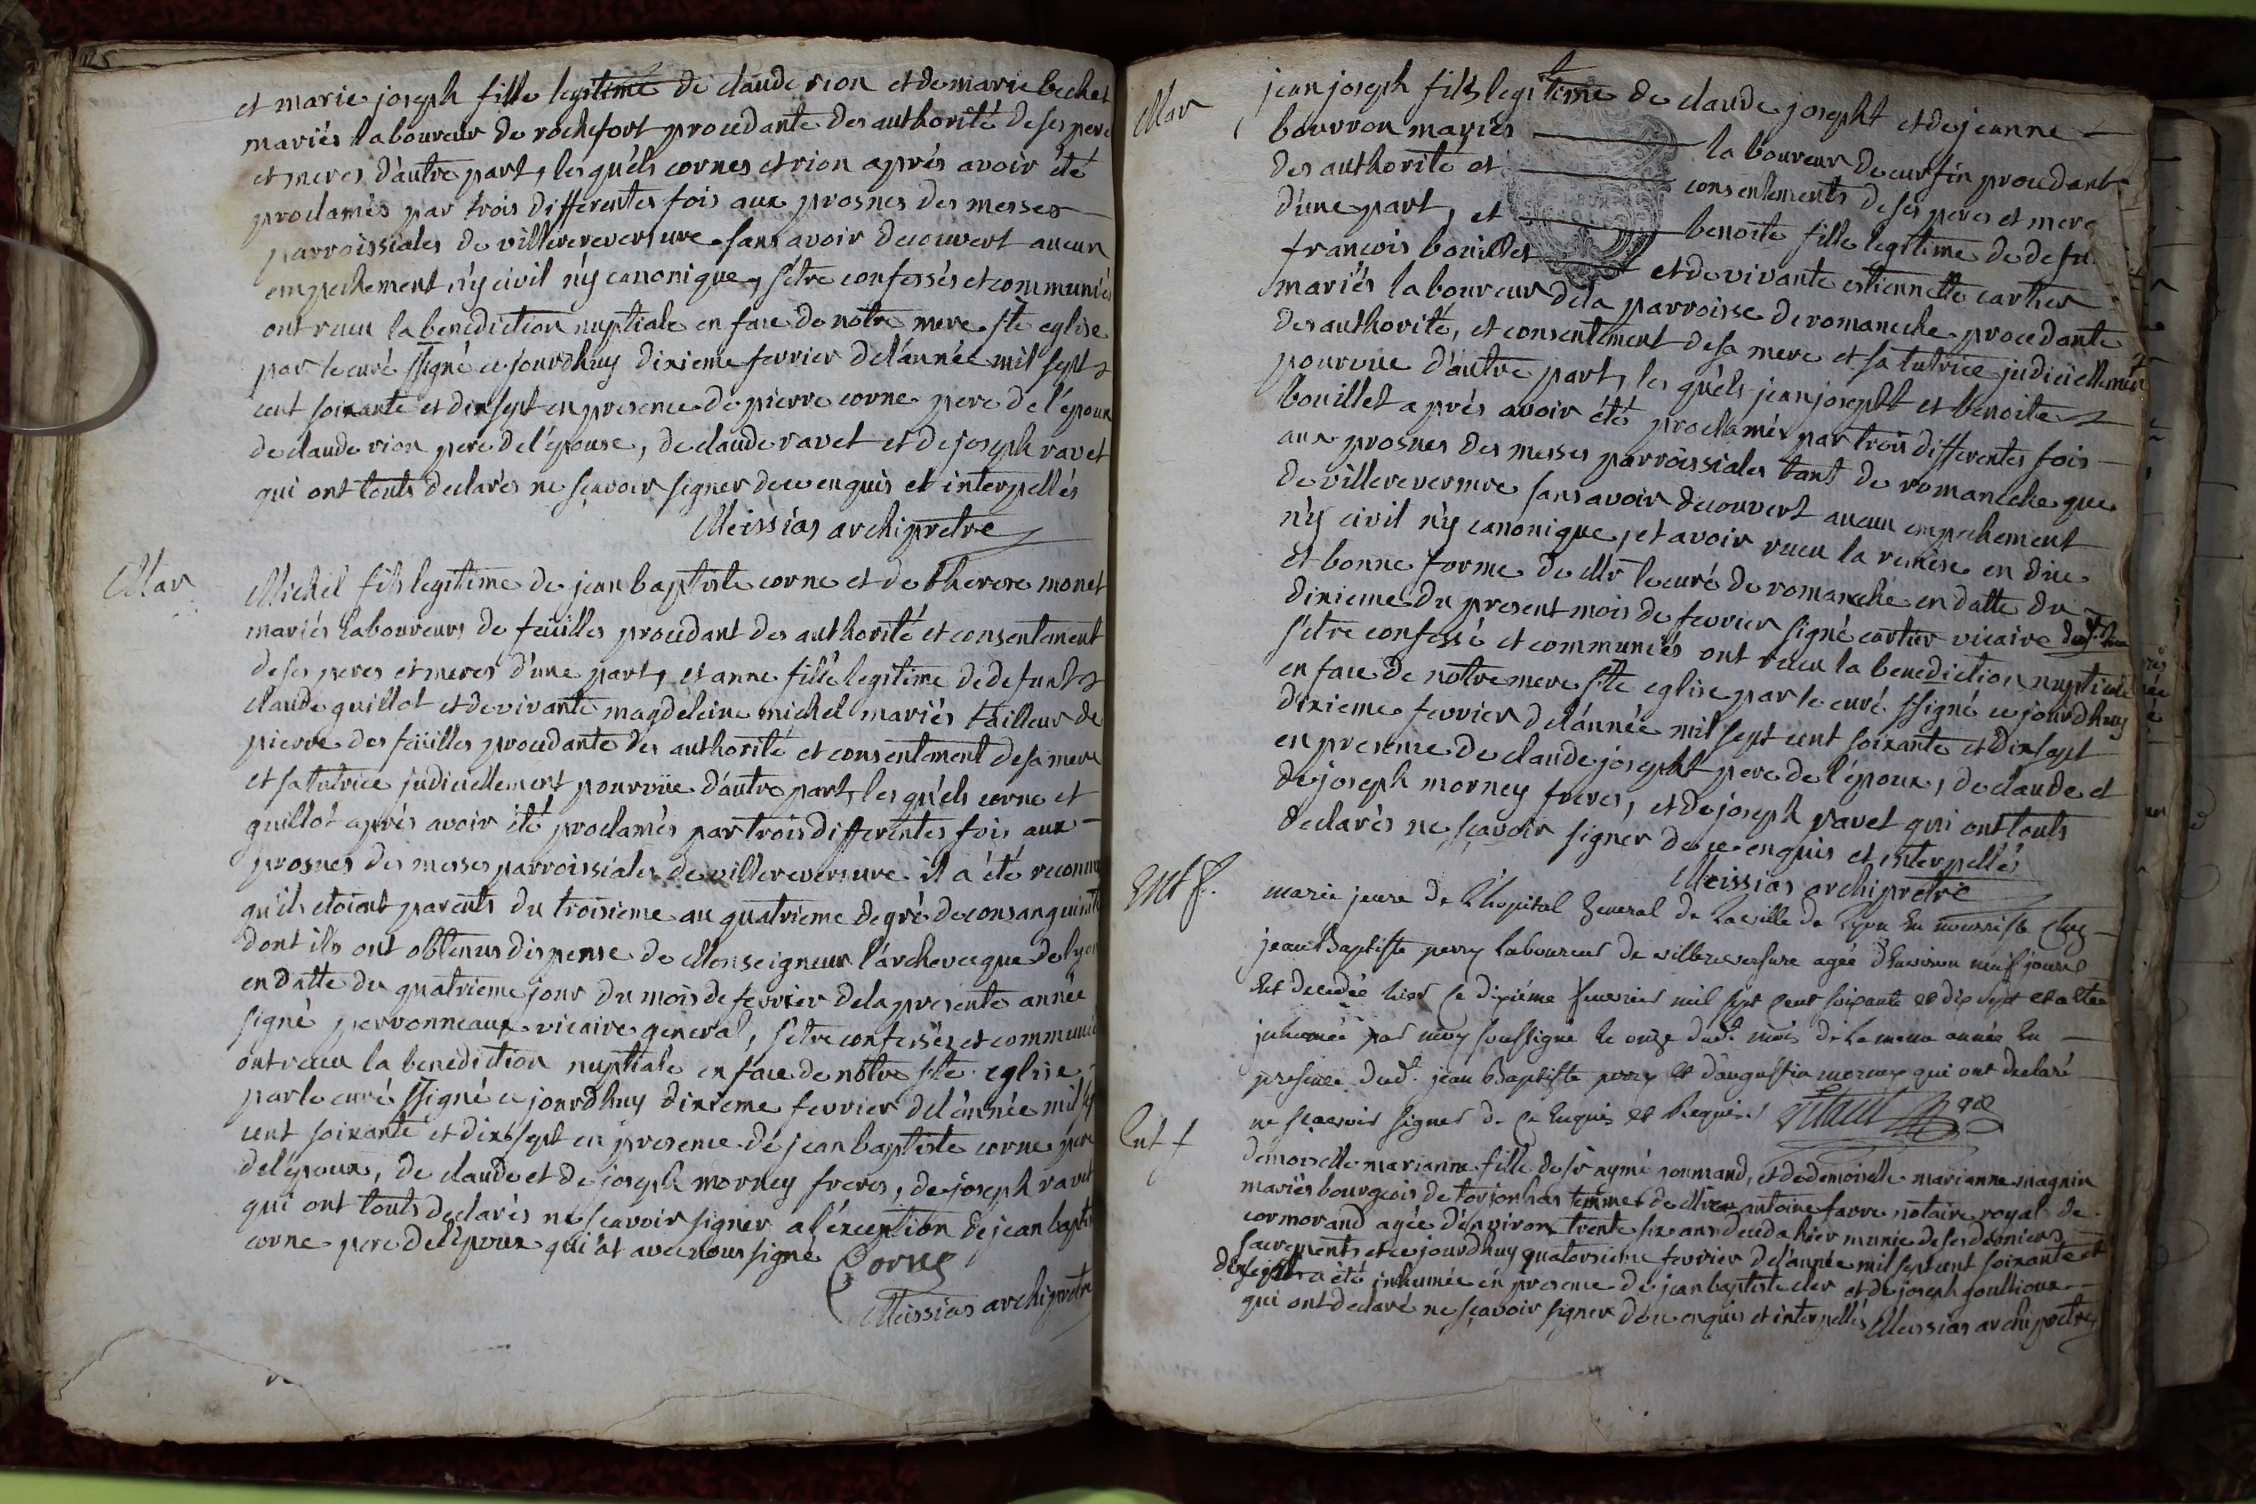 et marie joseph fille legitime de claude rion et de marie bechet
mariés laboureur de rochefort procedante des authorité de ses pere
et meres d'autre part, les quels cornes et rion aprés avoir été
proclamés par trois differentes fois aux prosnes des messes
parroissiales de villereversure sans avoir decouvert aucun
empechement, n'y civil n'y canonique, s'etre confessés et communiés
ont recu la benediction nuptiale en face de notre mere ste eglise
par le curé ssigné ce jourdhuy dixieme fevrier de l'année mil sept
cent soixante et dix sept en presence de pierre corne pere de l'epoux
de claude rion pere de l'epouse, de claude ravet et de joseph ravet
qui ont touts declarés ne sçavoir signer de ce enquis et interpellés
Meissias archipretre
Mar
Michel fils legitime de jean baptiste corne et de therese monet
mariés laboureurs de feüilles procedant des authorité et consentement
de ses peres et meres d'une part, et anne fille legitime de defunt
claude guillot et de vivante magdeleine michel mariés tailleur de
pierre des feüilles procedante des authorité et consentement de sa mere
et sa tutrice judiciellement pourvüe d'autre part, les quels corne et
guillot aprés avoir été proclamés par trois differentes fois aux
prosnes des messes parroissiales de villereversure il a été reconnu
qu'ils etoient parents du troisieme au quatrieme degré de consanguinité
dont ils ont obtenus dispense de Monseigneur l'archeveque de lyon
en datte du quatrieme jour du mois de fevrier de la presente année
signé perronneaux vicaire general, s'etre confessés et communiés
ont recu la benediction nuptiale en face de notre ste eglise
par le curé ssigné ce jourdhuy dixieme fevrier de l'année mil sept
cent soixante et dix sept en presence de jean baptiste corne pere
de l'epoux, de claude et de joseph morney freres, de joseph ravet
qui ont touts declarés ne sçavoir signer a l'exception de jean baptiste
corne pere de l'epoux qui at avec nous signé Corne
Meissias archipretre
Mar
jean joseph fils legitime de claude josepht et de jeanne
bourron mariés laboureur de curfin procedant
des authorité et consentements de ses peres et mere
d'une part, et benoite fille legitime de defu
francois bouillet et de vivante estiennette cartier
mariés laboureur de la parroisse de romaneche procedante
des authorité, et consentement de sa mere et sa tutrice judiciellement
pourvue d'autre part, les quels jean josepht et benoite
bouillet aprés avoir été proclamés par trois differentes fois
aux prosnes des messes parroissiales tant de romaneche que
de villereversure sans avoir decouvert aucun empechement
n'y civil n'y canonique, et avoir recu la remise en due
et bonne forme de Mr le curé de romaneche en datte du
dixieme du present mois de fevrier signé cartier vicaire dud.
s'etre confessé et communiés ont recu la benediction nuptiale
en face de notre mere ste eglise par le curé ssigné ce jourdhuy
dixieme fevrier de l'année mil sept cent soixante et dix sept
en presence de claude josepht pere de l'epoux, de claude et
de joseph morney freres, et de joseph ravet qui ont touts
declarés ne sçavoir signer de ce enquis et interpellés
Meissias archipretre
Ent f.
marie jeure de l'hopital general de la ville de lyon en nourrisse chez
jean Baptiste perry laboureur de villereversure agée d'environ neuf jours
est decedée hier le dixiéme feuvrier mil sept cent soixante et dix sept et a eté
inhumée par moy soussigné le onze dud. mois de la meme année en
presence dud. jean Baptiste perry et d'augustin morney qui ont declaré
ne sçavoir signer de ce enquis et requis
Ent f
demoiselle marianne fille de sr aymé gourmand, et de demoiselle marianne magnin
mariés bourgeois de torjonhas femme de Mre antoine favre notaire royal de
cormorand agée d'environ trente six ans deceda hier munie de ses derniers
sacrements et ce jourdhuy quatorsieme fevrier de l'année mil sept cent soixante et
dix sept a été inhumée en presence de jean baptiste cler et de joseph goullioux
qui ont declaré ne sçavoir signer de ce enquis et interpellés Meissias archipretre